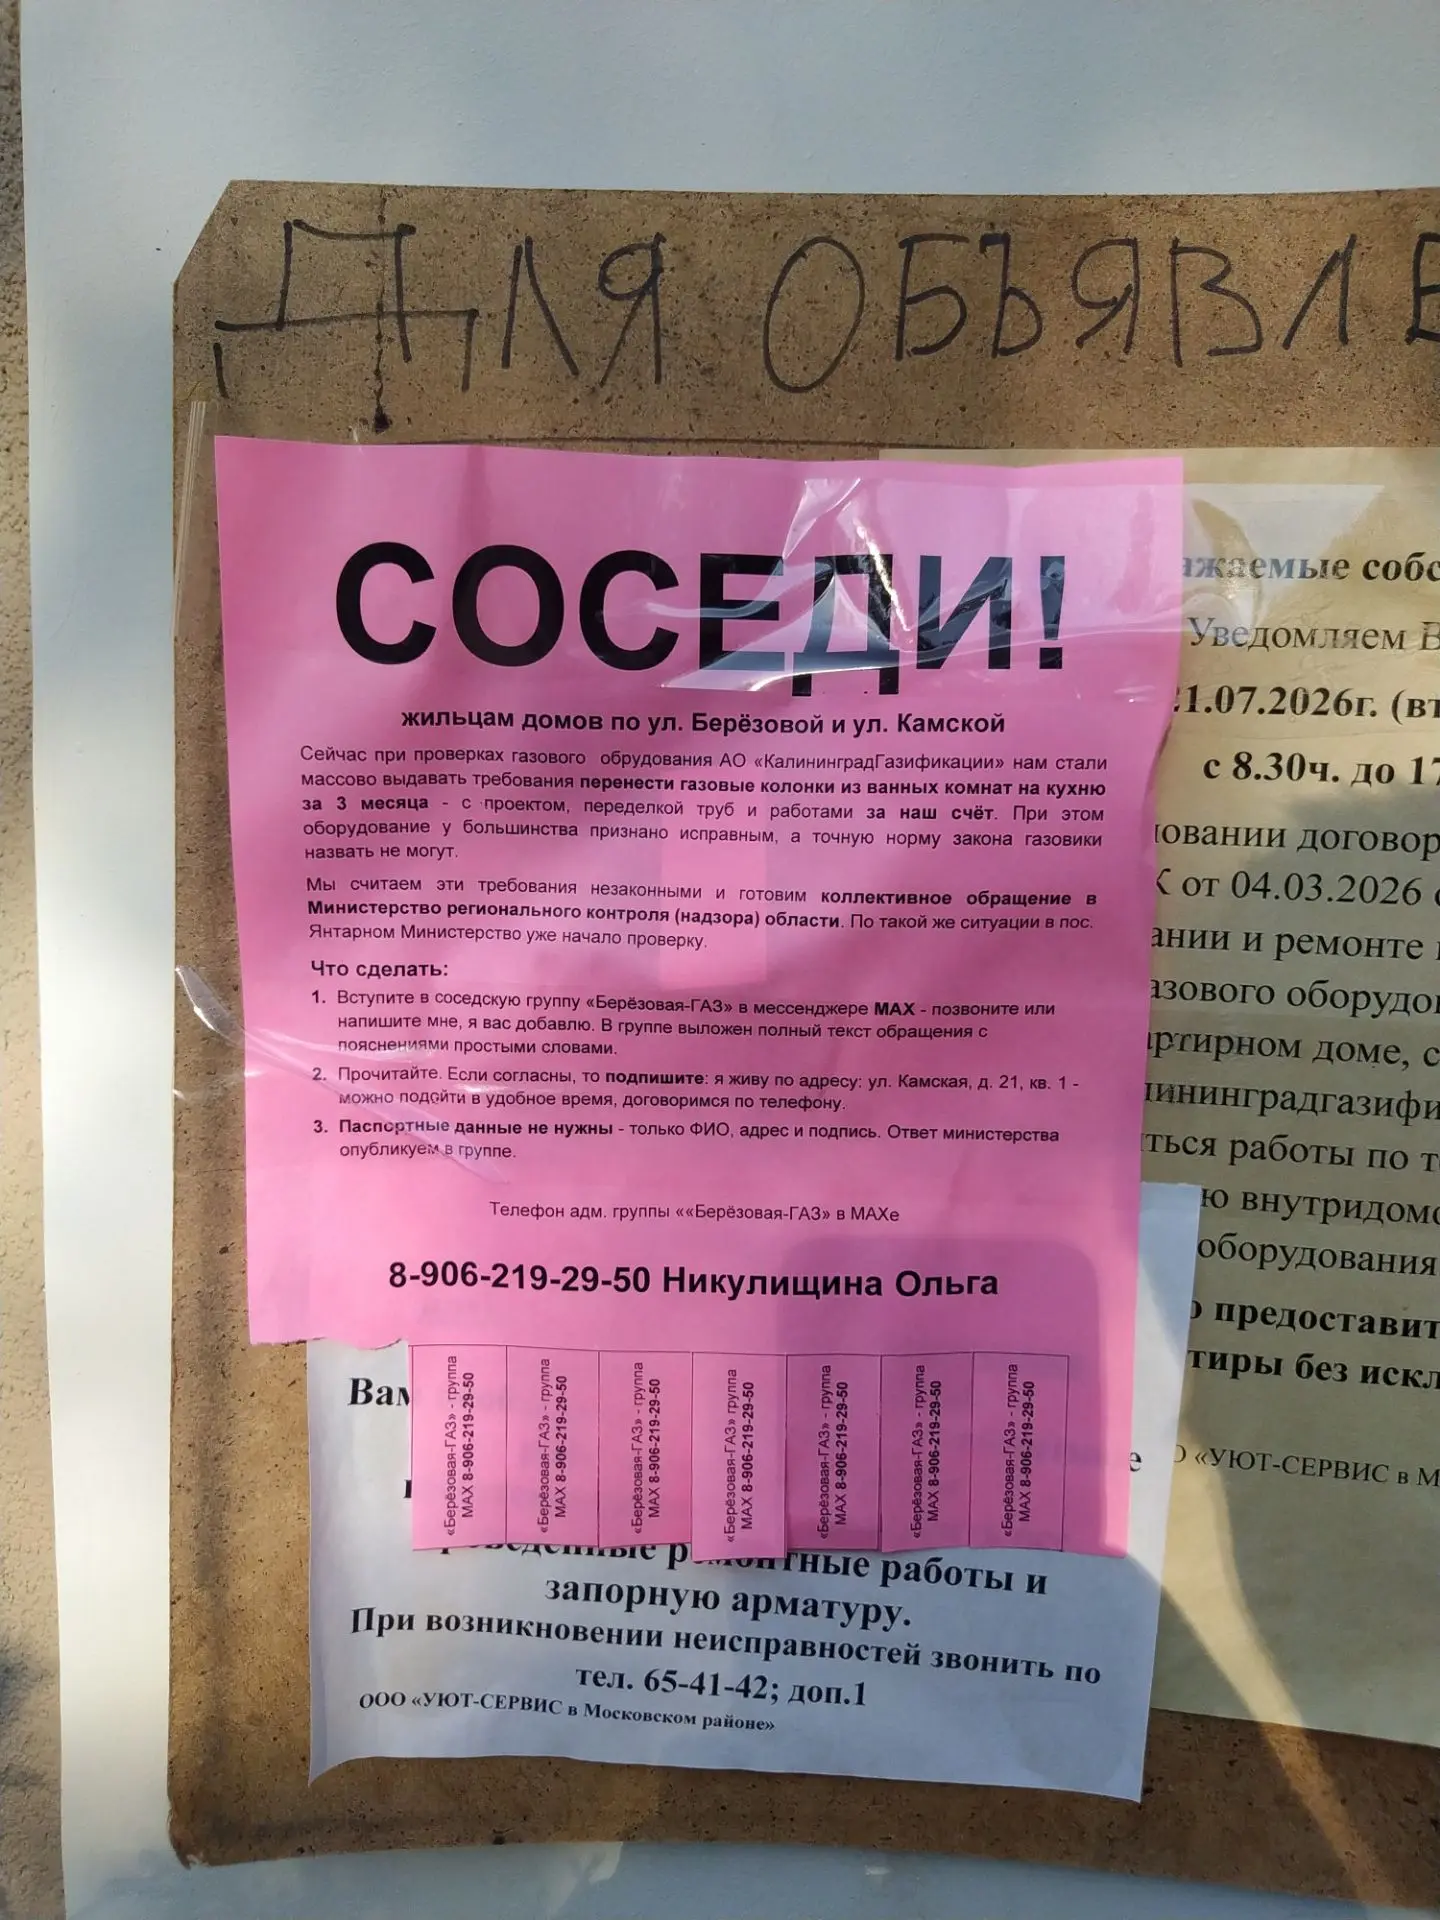 ДЛЯ ОБЪЯВЛЕ
СОСЕДИ!
жильцам домов по ул. Берёзовой и ул. Камской
Сейчас при проверках газового обрудования АО «КалининградГазификации» нам стали
массово выдавать требования перенести газовые колонки из ванных комнат на кухню
за 3 месяца - с проектом, переделкой труб и работами за наш счёт. При этом
оборудование у большинства признано исправным, а точную норму закона газовики
назвать не могут.
Мы считаем эти требования незаконными и готовим коллективное обращение в
Министерство регионального контроля (надзора) области. По такой же ситуации в пос.
Янтарном Министерство уже начало проверку.
Что сделать:
1. Вступите в соседскую группу «Берёзовая-ГАЗ» в мессенджере MAX - позвоните или
напишите мне, я вас добавлю. В группе выложен полный текст обращения с
пояснениями простыми словами.
2. Прочитайте. Если согласны, то подпишите: я живу по адресу: ул. Камская, д. 21, кв. 1 -
можно подойти в удобное время, договоримся по телефону.
3. Паспортные данные не нужны - только ФИО, адрес и подпись. Ответ министерства
опубликуем в группе.
Телефон адм. группы ««Берёзовая-ГАЗ» в МАХе
8-906-219-29-50 Никулищина Ольга
«Берёзовая-ГАЗ» - группа
MAX 8-906-219-29-50
«Берёзовая-ГАЗ» - группа
MAX 8-906-219-29-50
«Берёзовая-ГАЗ» - группа
MAX 8-906-219-29-50
«Берёзовая-ГАЗ» группа
MAX 8-906-219-29-50
«Берёзовая-ГАЗ» - группа
MAX 8-906-219-29-50
«Берёзовая-ГАЗ» - группа
MAX 8-906-219-29-50
«Берёзовая-ГАЗ» - группа
MAX 8-906-219-29-50
Вам
ремонтные работы и
запорную арматуру.
При возникновении неисправностей звонить по
тел. 65-41-42; доп.1
ООО «УЮТ-СЕРВИС в Московском районе»
ажаемые собс
Уведомляем В
21.07.2026г. (вт
с 8.30ч. до 17
новании договор
К от 04.03.2026 с
ании и ремонте
азового оборудо
артирном доме, с
лининградгазифи
ться работы по т
ю внутридомо
оборудования
о предоставит
тиры без искл
О «УЮТ-СЕРВИС в М